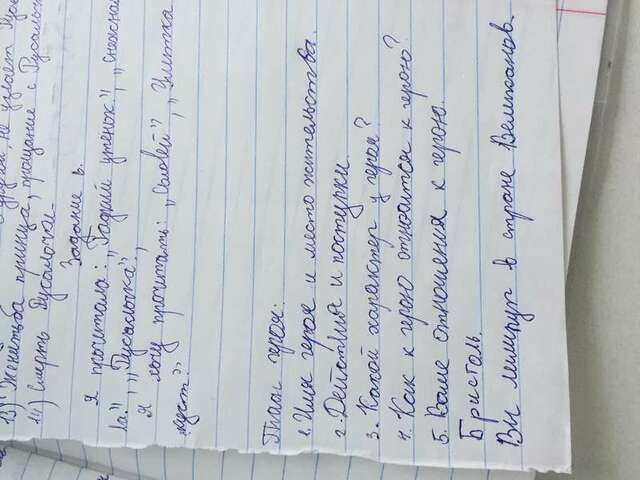 13) Женитьба принца, прощание с Русалочк
14) Смерть Русалочки.
Задание 6.
Я прочитала: "Гадкий утенок", "Снежная
"Русалочка",
Я хочу прочитать: "Соловей", "Улитка
План героя:
1. Имя героя и место жительства.
2. Действия и поступки.
3. Какой характер у героя?
4. Как к герою относится к герою?
5. Ваше отношения к герою.
Бристоль.
Вы лилипут в стране Великанов.